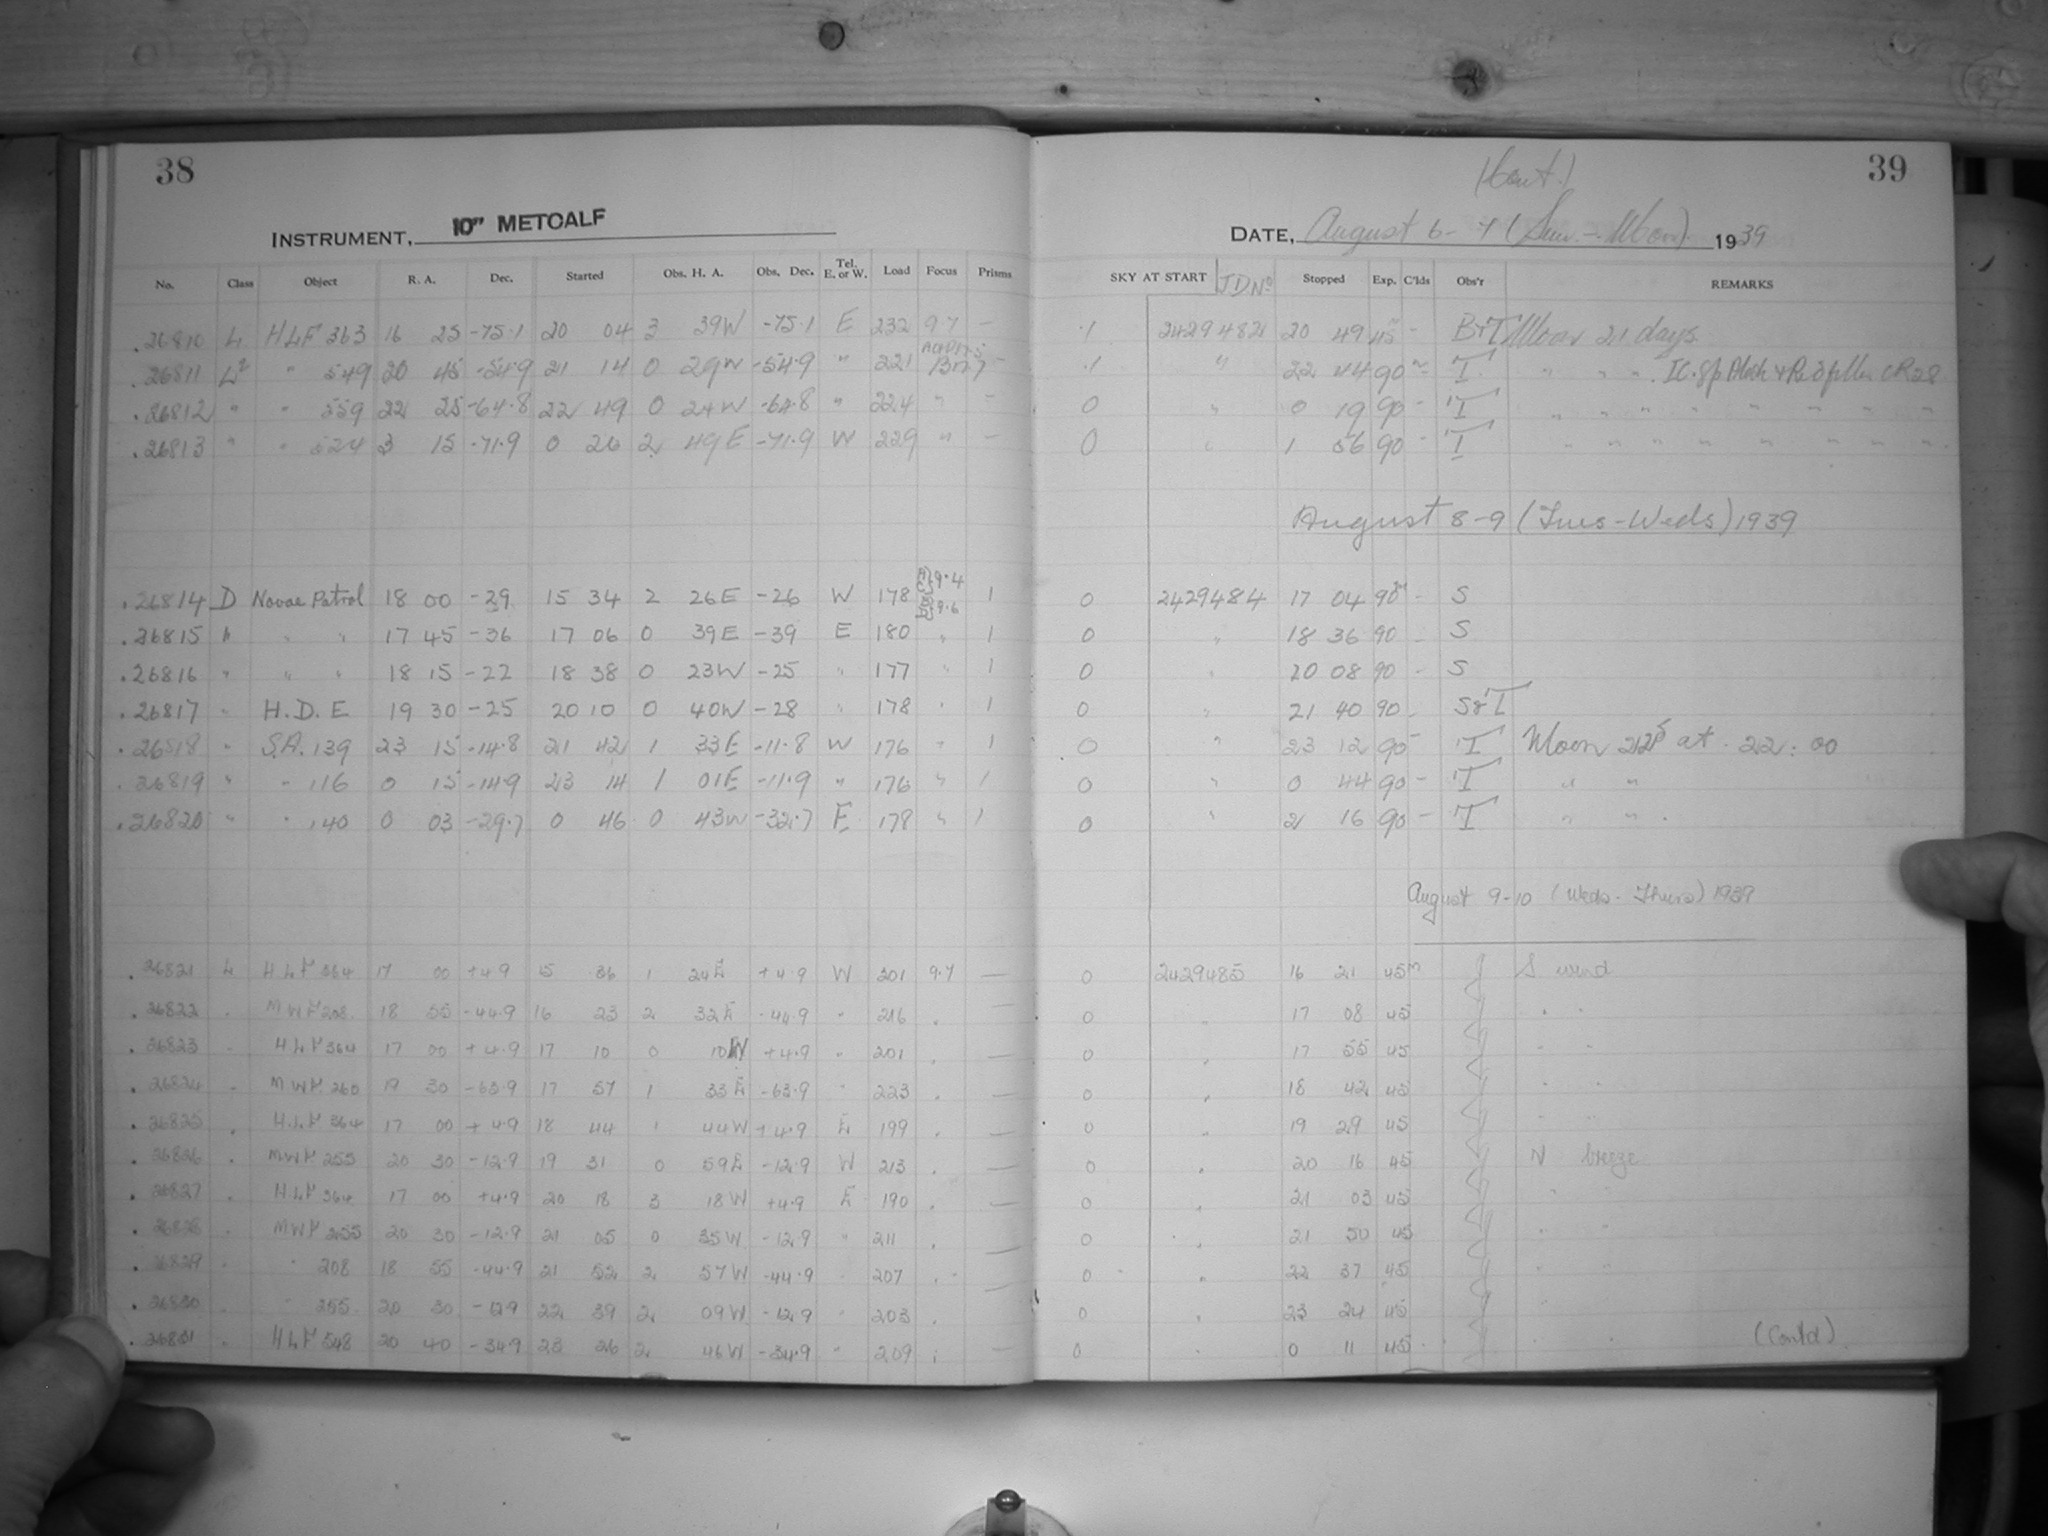 38
INSTRUMENT, 10" METCALF
No. Class Object R. A. Dec. Started Obs. H. A. Obs. Dec. Tel. E. or W. Load Focus Prisms
.26810 L HLF 363 16 25 -75.1 20 04 3 39W -75.1 E 232 9.7 -
.26811 L² " 549 20 45 -54.9 21 14 0 29W -54.9 " 221 -
.26812 " " 559 22 25 -64.8 22 49 0 24W -64.8 " 224 " -
.26813 " " 524 3 15 -71.9 0 26 2 49E -71.9 W 229 " -
.26814 D Novae Patrol 18 00 -29 15 34 2 26E -26 W 178 9.4 9.6 1
.26815 " " " 17 45 -36 17 06 0 39E -39 E 180 " 1
.26816 " " " 18 15 -22 18 38 0 23W -25 " 177 " 1
.26817 " H.D.E 19 30 -25 20 10 0 40W -28 " 178 " 1
.26818 " S.A. 139 23 15 -14.8 21 42 1 33E -11.8 W 176 " 1
.26819 " " 116 0 15 -14.9 23 14 1 01E -11.9 " 176 " 1
.26820 " " 140 0 03 -29.7 0 46 0 43W -32.7 E 178 " 1
.26821 L HLF 364 17 00 +4.9 15 36 1 24E +4.9 W 201 9.7 —
.26822 . MWF 208 18 55 -44.9 16 23 2 32E -44.9 " 216 . —
.26823 . HLF 364 17 00 +4.9 17 10 0 10W +4.9 " 201 . —
.26824 . MWF 260 19 30 -63.9 17 57 1 33E -63.9 " 223 . —
.26825 . HLF 364 17 00 +4.9 18 44 1 44W +4.9 E 199 . —
.26826 . MWF 255 20 30 -12.9 19 31 0 59E -12.9 W 213 . —
.26827 . HLF 364 17 00 +4.9 20 18 3 18W +4.9 E 190 . —
.26828 . MWF 255 20 30 -12.9 21 05 0 35W -12.9 " 211 . —
.26829 . " 208 18 55 -44.9 21 52 2 57W -44.9 " 207 . —
.26830 . " 255 20 30 -12.9 22 39 2 09W -12.9 " 203 . —
.26831 . HLF 548 20 40 -34.9 23 26 2 46W -34.9 " 209 . —
39
(Cont.)
DATE, August 6-7 (Sun.-Mon) 1939
SKY AT START JD No Stopped Exp. C'lds Obs'r REMARKS
.1 2429482 20 49 45m - B&T Moon 21 days
.1 " 22 44 90m - T " " "
0 " 0 19 90 - T " " " " " " " "
0 " 1 56 90 - T " " " " " " " "
August 8-9 (Tues-Weds) 1939
0 2429484 17 04 90m - S
0 " 18 36 90 - S
0 " 20 08 90 - S
0 " 21 40 90 - S&T
0 " 23 12 90 - T Moon at 22:00
0 " 0 44 90 - T " "
0 " 2 16 90 - T " "
August 9-10 (Weds-Thurs) 1939
0 2429485 16 21 45m S wind
0 " 17 08 45 " "
0 " 17 55 45 " "
0 " 18 42 45 " "
0 " 19 29 45 " "
0 " 20 16 45 N breeze
0 " 21 03 45 " "
0 " 21 50 45 " "
0 " 22 37 45 " "
0 " 23 24 45 "
0 " 0 11 45 " "
(Contd)